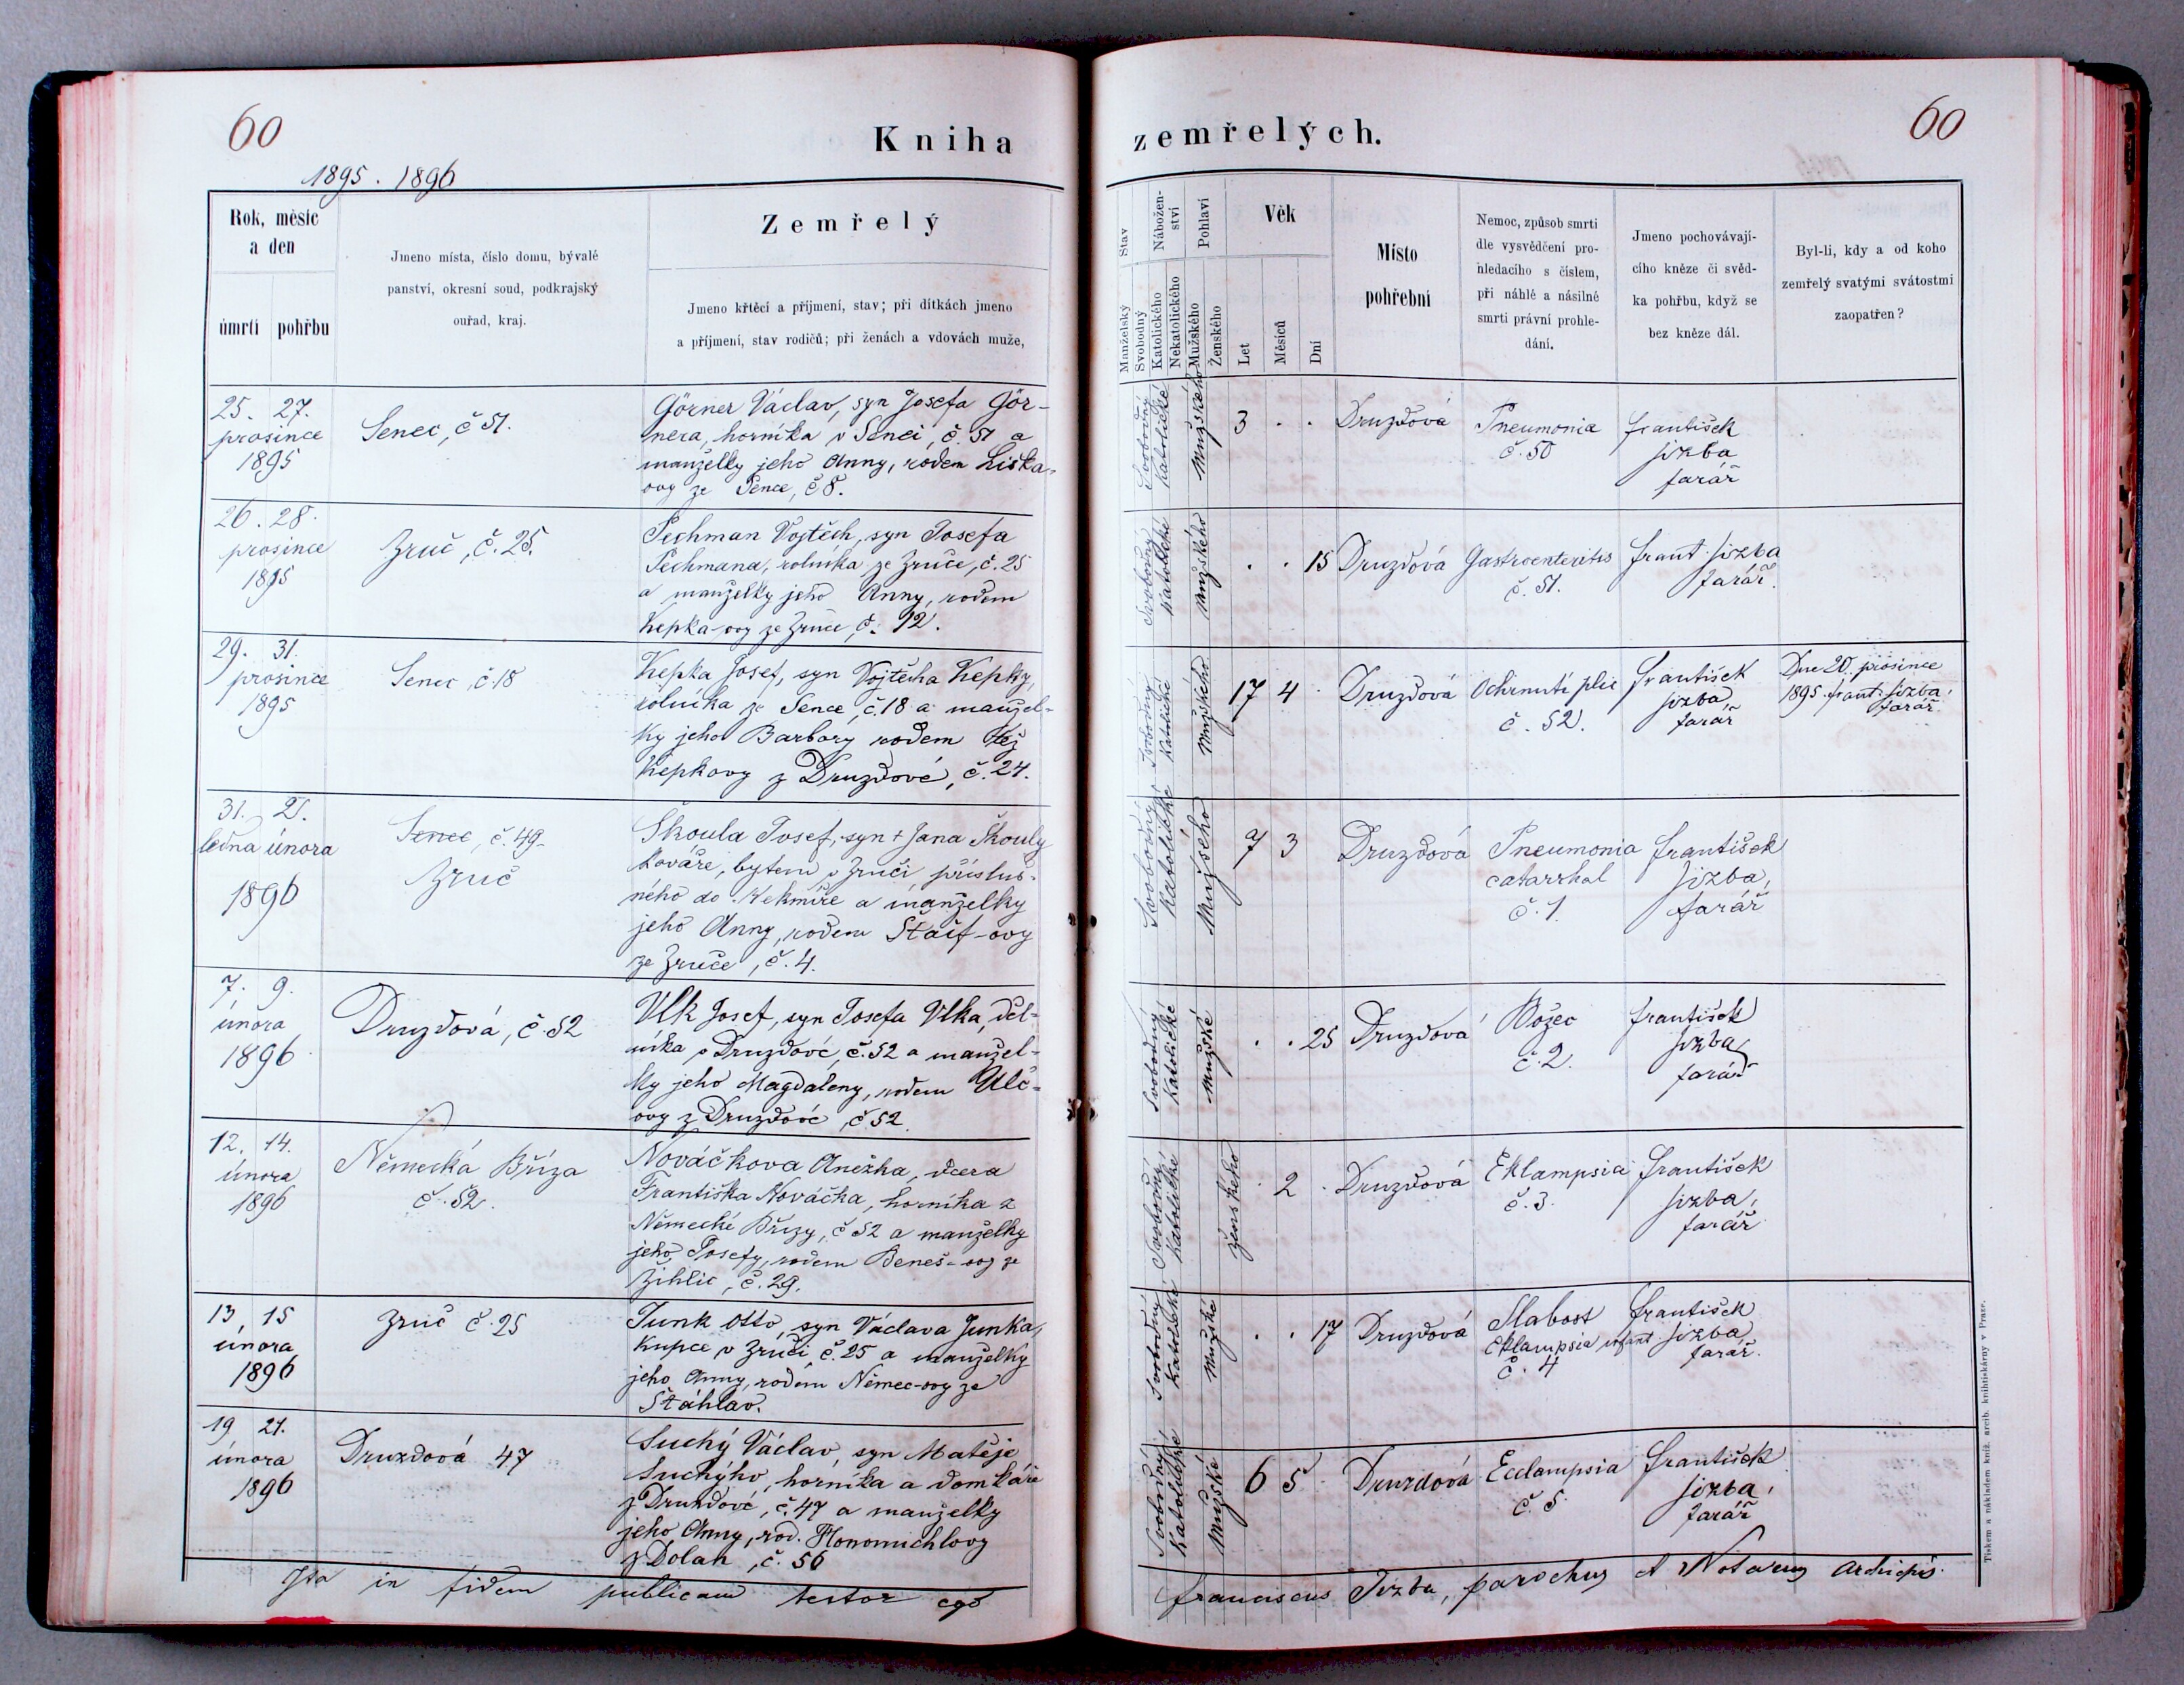 60
Kniha
1895. 1896
Rok, měsíc
a den
úmrtí pohřbu
Jmeno místa, číslo domu, bývalé
panství, okresní soud, podkrajský
ouřad, kraj.
Zemřelý
Jmeno křtěcí a příjmení, stav; při dítkách jmeno
a příjmení, stav rodičů; při ženách a vdovách muže,
25. 27.
prosince
1895
Senec, č 51.
Görner Václav, syn Josefa Gör-
nera, horníka v Senci, č. 51 a
manželky jeho Anny, rodem Liška-
ovy ze Sence, č 8.
26. 28.
prosince
1895
Zruč, č. 25.
Pechman Vojtěch, syn Josefa
Pechmana, rolníka ze Zruče, č. 25
a manželky jeho Anny, rodem
Kepka-ovy ze Zruče, č. 12.
29. 31.
prosince
1895
Senec, č. 18
Kepka Josef, syn Vojtěcha Kepky,
rolníka ze Sence, č. 18 a manžel-
ky jeho Barbory rodem též
Kepkovy z Druzdové, č. 24.
31. 2.
ledna února
1896
Senec, č. 49.
Zruč
Škoula Josef, syn † Jana Škouly
kováře, bytem v Zruči, přísluš-
ného do Nekmíře a manželky
jeho Anny, rodem Štaif-ovy
ze Zruče, č. 4.
7. 9.
února
1896
Druzdová, č. 52
Vlk Josef, syn Josefa Vlka, děl-
níka v Druzdové, č. 52 a manžel-
ky jeho Magdaleny, rodem Ulč-
ovy z Druzdové, č 52.
12. 14.
února
1896
Německá Bříza
č. 52.
Nováčkova Anežka, dcera
Františka Nováčka, horníka z
Německé Břízy, č 52 a manželky
jeho Josefy, rodem Beneš-ovy ze
Žihlic, č. 29.
13, 15
února
1896
Zruč č. 25
Junk Otto, syn Václava Junka,
kupce v Zruči, č. 25 a manželky
jeho Anny, rodem Němec-ovy ze
Štáhlav.
19 21.
února
1896
Druzdová 47
Suchý Václav, syn Matěje
Suchýho, horníka a domkáře
z Druzdové, č. 47 a manželky
jeho Anny, rod. Honomichlovy
z Dolan, č. 56
Ita in fidem publicam testor ego
60
zemřelých.
Stav
Manželský
Svobodný
Nábožen-
ství
Katolického
Nekatolického
Pohlaví
Mužského
Ženského
Věk
Let
Měsíců
Dní
Místo
pohřební
Nemoc, způsob smrti
dle vysvědčení pro-
hledacího s číslem,
při náhlé a násilné
smrti právní prohle-
dání.
Jmeno pochovávají-
cího kněze či svěd-
ka pohřbu, když se
bez kněze dál.
Byl-li, kdy a od koho
zemřelý svatými svátostmi
zaopatřen?
Svobodný
Katolické
Mužského
3 . .
Druzdová
Pneumonia
č. 50
František
Jizba
farář
Svobodný
Katolické
Mužského
. . 15
Druzdová
Gastroenteritis
č. 51.
Frant. Jizba
farář.
Svobodný
Katolické
Mužského
17 4 .
Druzdová
Ochrnutí plic
č. 52.
František
Jizba
farář
Dne 20. prosince
1895 Frant. Jizba,
farář.
Svobodný
Katolické
Mužského
3
Druzdová
Pneumonia
catarrhal
č. 1.
František
Jizba,
farář
Svobodný
Katolické
Mužské
. . 25
Druzdová
Božec
č. 2.
František
Jizba,
farář
Svobodný
Katolické
ženského
. 2 .
Druzdová
Eklampsia
č. 3.
František
Jizba,
farář
Svobodný
Katolické
Mužské
. . 17
Druzdová
Slabost
Eklampsia infant.
č. 4
František
Jizba,
farář.
Svobodný
Katolické
Mužské
6 5
Druzdová
Ecclampsia
č. 5.
František
Jizba,
farář
Franciscus Jizba, parochus et Notarius archiepis.
Tiskem a nákladem kníž. arcib. knihtiskárny v Praze.